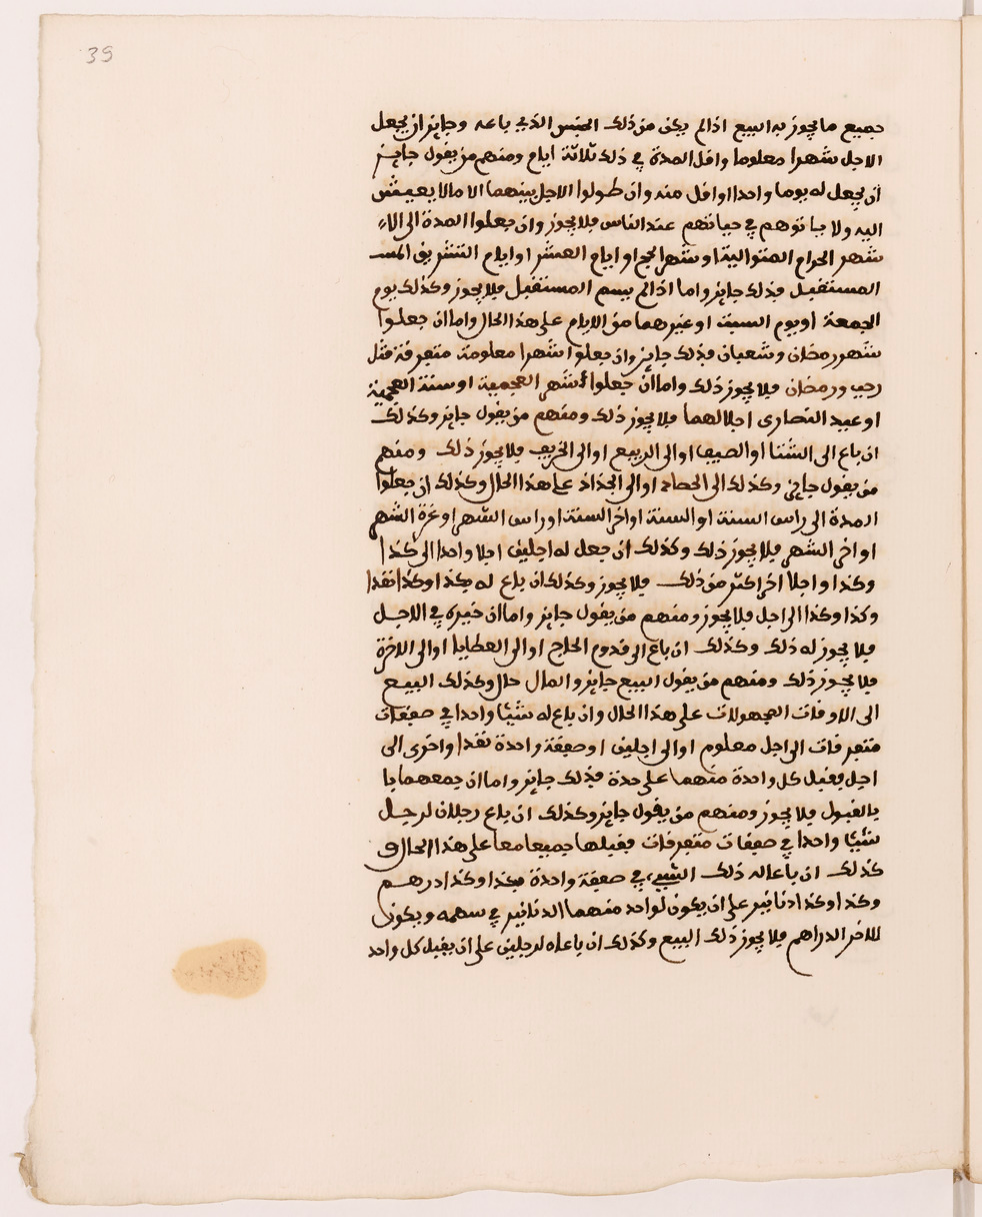 39
جميع ما يجوز به البيع اذا لم يكن من ذلك الجنس الذي باعه وجايز ان يجعل
الاجل شهرا معلوما واقل المدة في ذلك ثلاثة ايام ومنهم من يقول جايز
ان يجعل له يوما واحدا او اقل منه وان طولوا الاجل بينهما الا ما لا يعيش
اليه ولا يباتوهم في حياتهم عند الناس فلا يجوز وان جعلوا المدة الى الا
شهر الحرام المتوالية او شهر الحج او ايام العشر او ايام التشريق المسـ
المستقبل فذلك جايز واما اذا لم يسم المستقبل فلا يجوز وكذلك يوم
الجمعة او يوم السبت او غيرهما من الايام على هذا الحال واما ان جعلوا
شهور رمضان وشعبان فذلك جايز وان جعلوا شهرا معلومة متفرقة مثل
رجب ورمضان فلا يجوز ذلك واما ان جعلوا شهر العجمية او سنة العجمية
او عيد النصارى اجلا لهما فلا يجوز ذلك ومنهم من يقول جايز وكذلك
ان باع الى الشتا او الصيف او الى الربيع او الى الخريف فلا يجوز ذلك ومنهم
من يقول جايز وكذلك الى الحصاد او الى الجذاذ على هذا الحال وكذلك ان جعلوا
المدة الى راس السنة او السنة او اخر السنة او راس الشهر او غرة الشهر
او اخر الشهر فلا يجوز ذلك وكذلك ان جعل له اجلين اجلا واحدا الى كذا
وكذا واجلا اخر اكثر من ذلك فلا يجوز وكذلك ان باع له بكذا وكذا نقدا
وكذا وكذا الى اجل فلا يجوز ومنهم من يقول جايز واما ان خيره في الاجل
فلا يجوز له ذلك وكذلك ان باع الى قدوم الحاج او الى العطايا او الى الاخرة
فلا يجوز ذلك ومنهم من يقول البيع جايز والمال حال وكذلك البيع
الى الاوقات المجهولات على هذا الحال وان باع له شيئا واحدا في صفقات
متفرقات الى اجل معلوم او الى اجلين او صفقة واحدة نقدا واخرى الى
اجل فقبل كل واحدة منهما على حدة فذلك جايز واما ان جمعهما با
بالقبول فلا يجوز ومنهم من يقول جايز وكذلك ان باع رجلان لرجل
شيئا واحدا في صفقات متفرقات فقبلها جميعا معا على هذا الحال و
كذلك ان باعا له ذلك الشيء في صفقة واحدة بكذا وكذا درهم
وكذا وكذا دنانير على ان يكون لواحد منهما الدنانير في سهمه ويكون
للاخر الدراهم فلا يجوز ذلك البيع وكذلك ان باعاه لرجلين على ان يقبل كل واحد